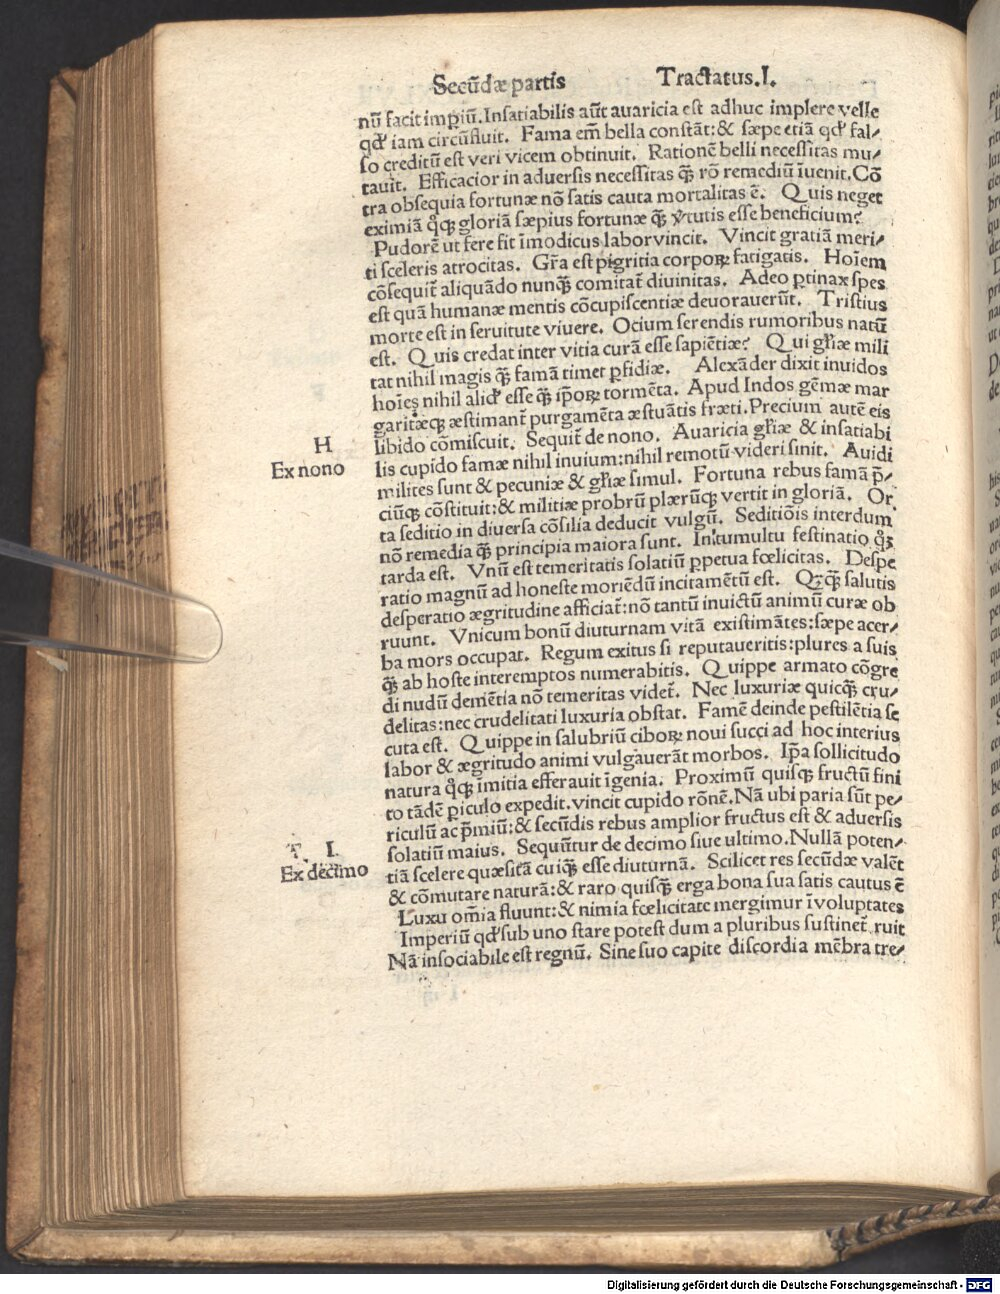 Secūdæ partis Tractatus.I.
nū facit impiū. Insatiabilis aūt auaricia est adhuc implere velle
qd̕ iam circūfluit. Fama em̄ bella constāt: & sæpe etiā qd̕ fal⸗
so creditū est veri vicem obtinuit. Rationē belli necessitas mu⸗
tauit. Efficacior in aduersis necessitas q̄ꝫ rō remediū īuenit. Cō
tra obsequia fortunæ nō satis cauta mortalitas ē. Quis neget
eximiā q̊qꝫ gloriā sæpius fortunæ q̄ꝫ v̕tutis esse beneficium?
Pudorē ut fere fit īmodicus labor vincit. Vincit gratiā meri⸗
ti sceleris atrocitas. Gr̄a est pigritia corpoꝝ fatigatis. Hoīem
cōsequit̄ aliquādo nunq̄ꝫ comitat̄ diuinitas. Adeo ꝑtinax spes
est quā humanæ mentis cōcupiscentiæ deuorauerūt. Tristius
morte est in seruitute viuere. Ocium serendis rumoribus natū
est. Quis credat inter vitia curā esse sapiētiæ? Qui gl̄iæ mili
tat nihil magis q̄ꝫ famā timet ꝑfidiæ. Alexāder dixit inuidos
hoīes nihil aliď esse q̄ꝫ ip̄oꝝ tormēta. Apud Indos gēmæ mar
garitæqꝫ æstimant̄ purgamēta æstuātis fræti. Precium autē eis
H
libido cōmiscuit. Sequit̄ de nono. Auaricia gl̄iæ & insatiabi
Ex nono
lis cupido famæ nihil inuium: nihil remotū videri sinit. Auidi
milites sunt & pecuniæ & gl̄iæ simul. Fortuna rebus famā p̄⸗
ciūqꝫ cōstituit: & militiæ probrū plærūqꝫ vertit in gloriā. Or
ta seditio in diuersa cōsilia deducit vulgū. Seditiōis interdum
nō remedia q̄ꝫ principia maiora sunt. In tumultu festinatio q̊ꝫ
tarda est. Vnū est temeritatis solatiū ꝑpetua fœlicitas. Despe
ratio magnū ad honeste moriēdū incitamētū est. Qꝫq̄ꝫ salutis
desperatio ægritudine afficiat̄: nō tantū inuictū animū curæ ob
ruunt. Vnicum bonū diuturnam vitā existimātes: sæpe acer⸗
ba mors occupat. Regum exitus si reputaueritis: plures a suis
q̄ꝫ ab hoste interemptos numerabitis. Quippe armato cōgre
di nudū demētia nō temeritas videt̄. Nec luxuriæ quicq̄ꝫ cru⸗
delitas: nec crudelitati luxuria obstat. Famē deinde pestilētia se
cuta est. Quippe in salubriū ciboꝝ noui succi ad hoc interius
labor & ægritudo animi vulgauerāt morbos. Ip̄a sollicitudo
natura q̊qꝫ īmitia efferauit īgenia. Proximū quisqꝫ fructū fini
to tādē ꝑiculo expedit. vincit cupido rōnē. Nā ubi paria sūt pe⸗
riculū ac p̄miū: & secūdis rebus amplior fructus est & aduersis
T. I.
solatiū maius. Sequūtur de decimo siue ultimo. Nullā poten⸗
Ex decimo
tiā scelere quæsitā cuiq̄ꝫ esse diuturnā. Scilicet res secūdæ valēt
& cōmutare naturā: & raro quisq̄ꝫ erga bona sua satis cautus ē
Luxu om̄ia fluunt: & nimia fœlicitate mergimur ī voluptates
Imperiū qd̕ sub uno stare potest dum a pluribus sustinet̄ ruit
Nā insociabile est regnū. Sine suo capite discordia mēbra tre⸗